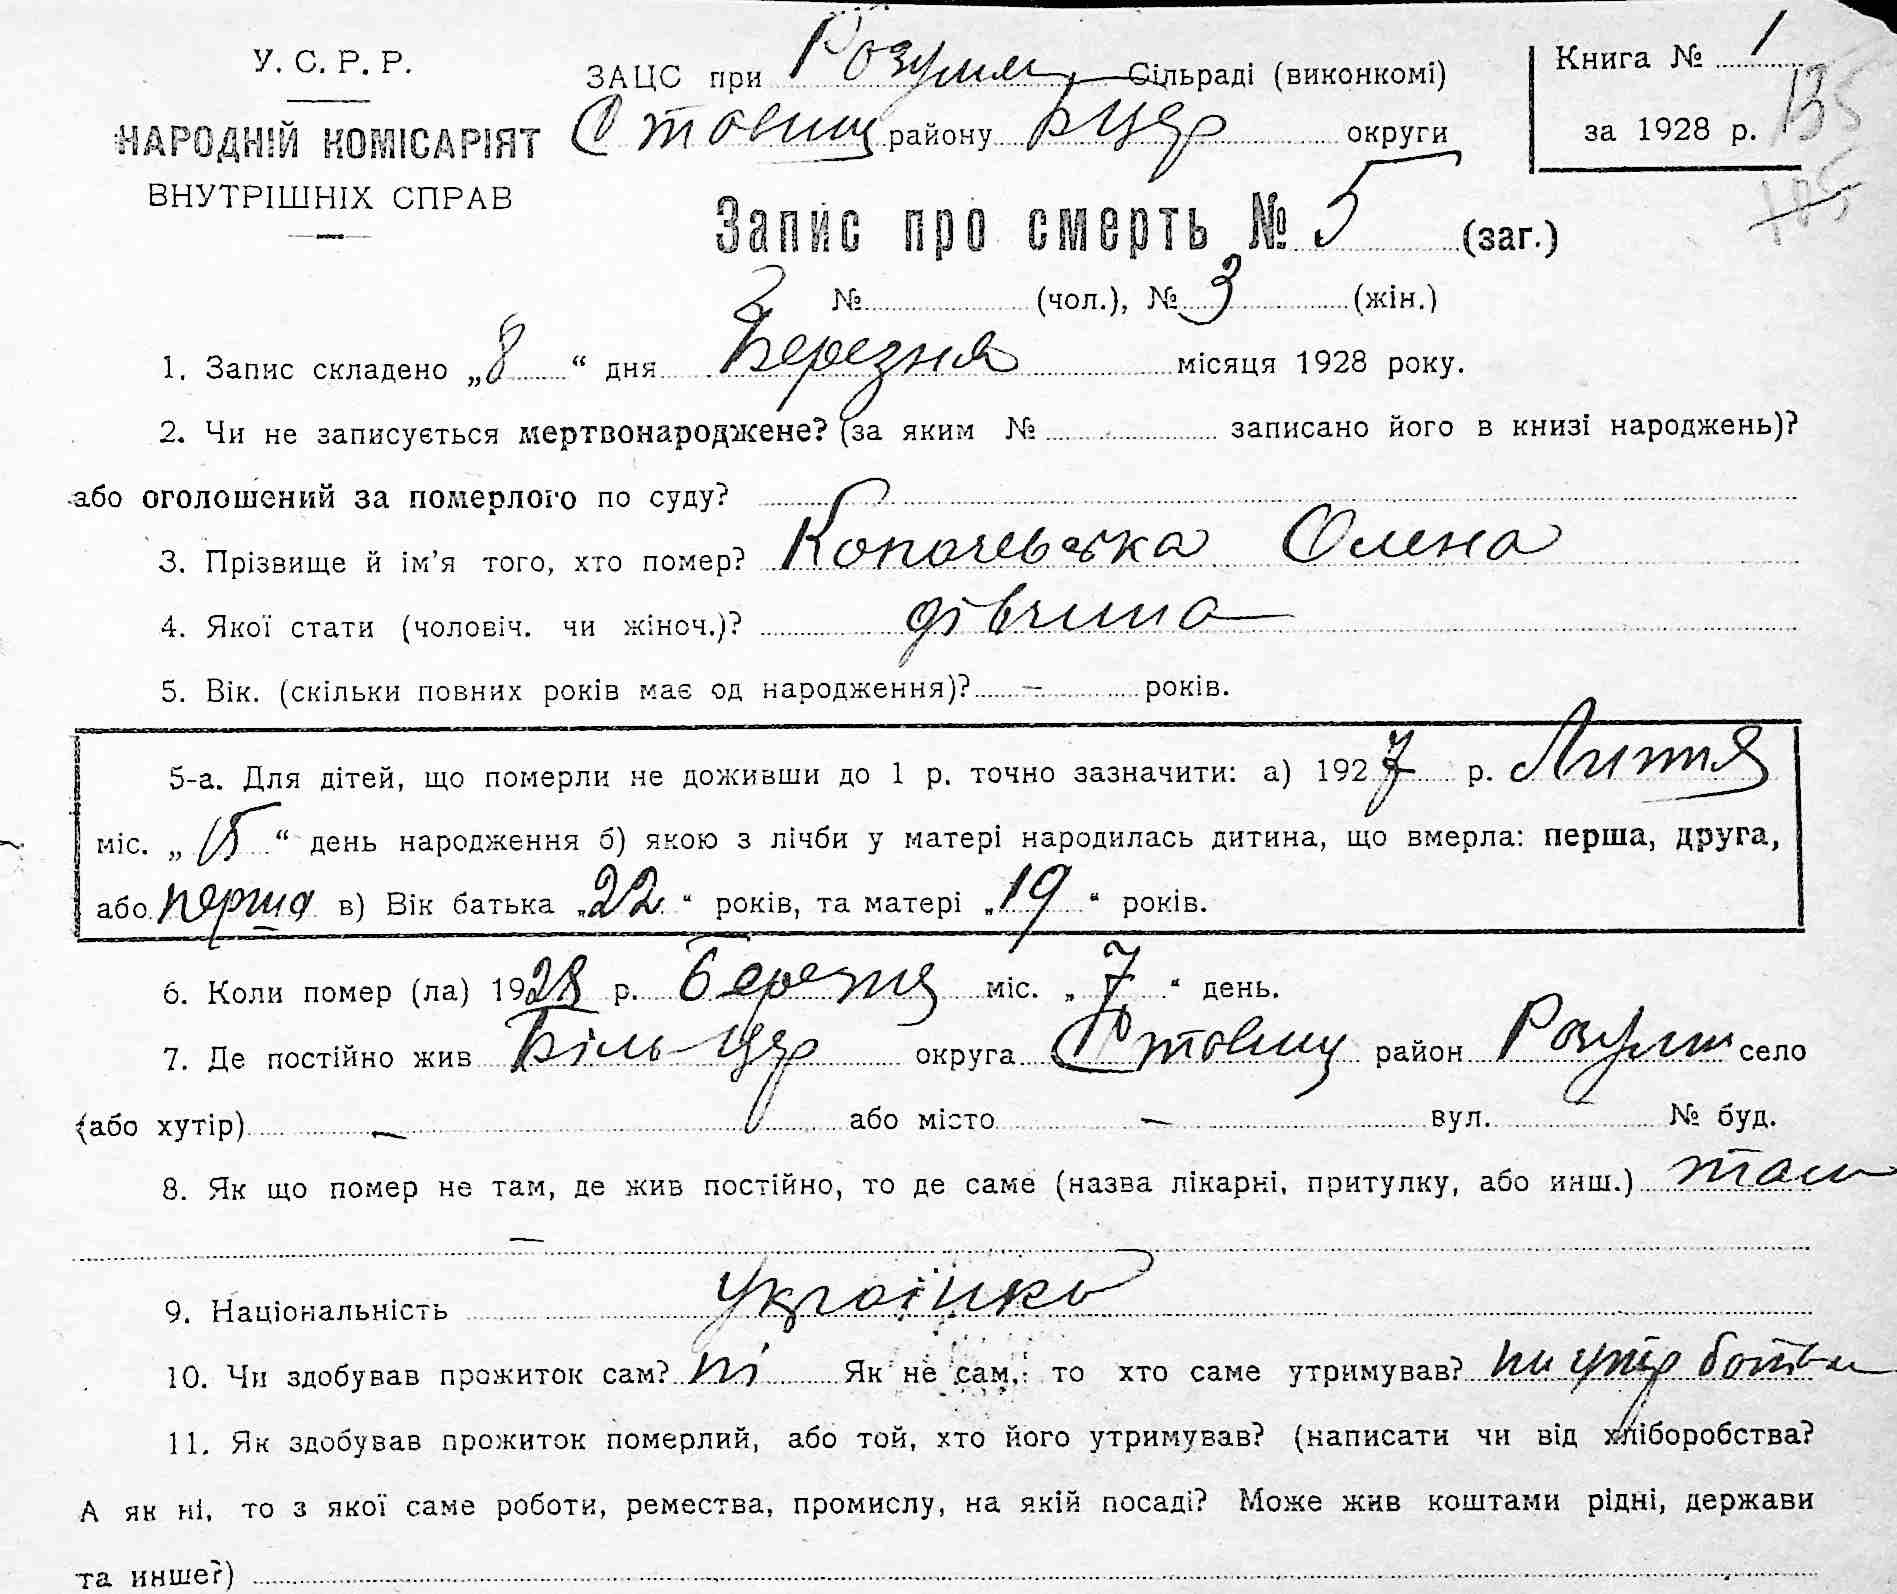 У. С. Р. Р.
НАРОДНІЙ КОМІСАРІЯТ
ВНУТРІШНІХ СПРАВ
ЗАЦС при Розумн. Сільраді (виконкомі)
Ставищ району БЦер округи
Книга № 1
за 1928 р. 135
185
Запис про смерть № 5 (заг.)
№ (чол.), № 3 (жін.)
1. Запис складено „8“ дня Березня місяця 1928 року.
2. Чи не записується мертвонароджене? (за яким № записано його в книзі народжень)?
або оголошений за померлого по суду?
3. Прізвище й ім'я того, хто помер? Копачевська Олена
4. Якої стати (чоловіч. чи жіноч.)? дівчина
5. Вік. (скільки повних років має од народження)? – років.
5-а. Для дітей, що померли не доживши до 1 р. точно зазначити: а) 1927 р. Липня
міс. „15“ день народження б) якою з лічби у матері народилась дитина, що вмерла: перша, друга,
або перша в) Вік батька „22“ років, та матері „19“ років.
6. Коли помер (ла) 1928 р. Березня міс. „7“ день.
7. Де постійно жив Біль-Цер округа Ставищ район Розумн село
(або хутір) – або місто – вул. № буд.
8. Як що помер не там, де жив постійно, то де саме (назва лікарні, притулку, або инш.) там
–
9. Національність Українка
10. Чи здобував прожиток сам? ні Як не сам, то хто саме утримував? на утр батьки
11. Як здобував прожиток померлий, або той, хто його утримував? (написати чи від хліборобства?
А як ні, то з якої саме роботи, ремества, промислу, на якій посаді? Може жив коштами рідні, держави
та инше?)